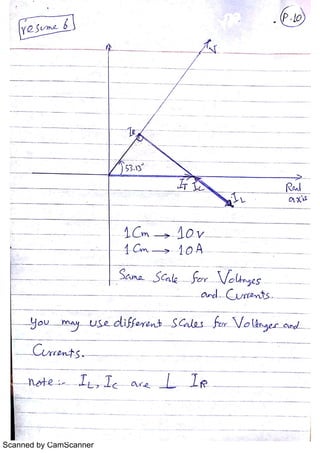 resume 6
P.10
V
IR
53.13°
IT IC
IL
Real
axis
1 Cm → 10 V
1 Cm → 10 A
Same Scale for Voltages
and Currents.
You may use different Scales for Voltages and
Currents.
note :- IL, IC are ⊥ IR
Scanned by CamScanner